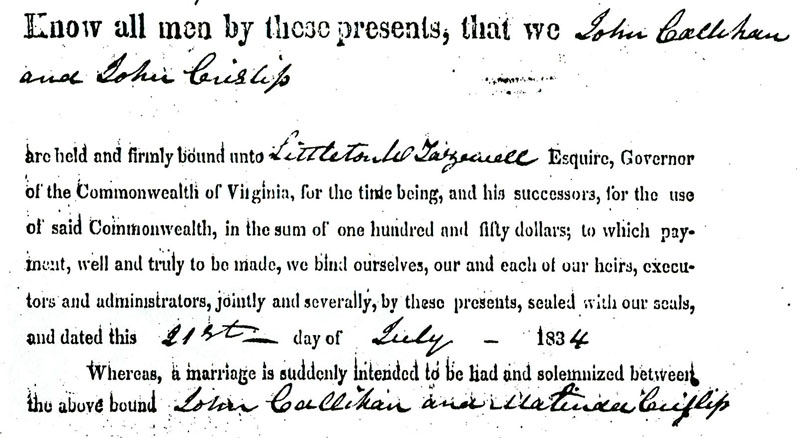 Know all men by these presents, that we John Callihan
and John Crislip
are held and firmly bound unto Littleton W Tazewell Esquire, Governor
of the Commonwealth of Virginia, for the time being, and his successors, for the use
of said Commonwealth, in the sum of one hundred and fifty dollars; to which pay-
ment, well and truly to be made, we bind ourselves, our and each of our heirs, execu-
tors and administrators, jointly and severally, by these presents, sealed with our seals,
and dated this 21st — day of July - 1834
Whereas, a marriage is suddenly intended to be had and solemnized between
the above bound John Callihan and Matinda Crislip